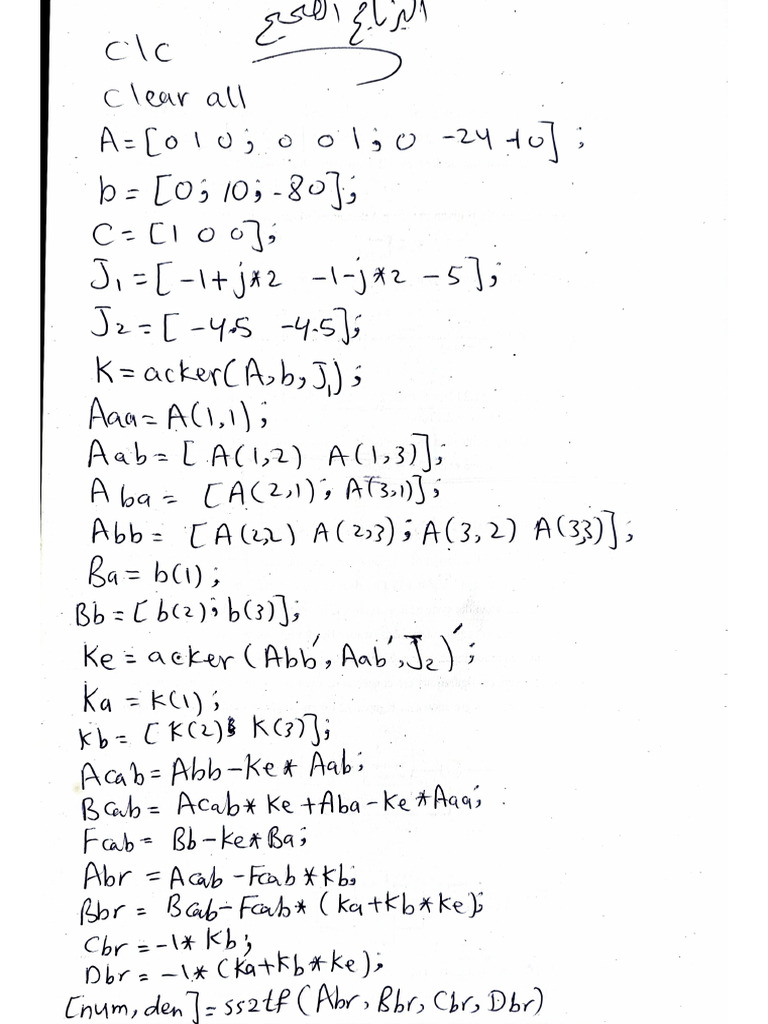 البرنامج الصحيح
clc
clear all
A=[0 1 0; 0 0 1; 0 -24 -10];
b=[0; 10; -80];
C=[1 0 0];
J₁=[-1+j*2 -1-j*2 -5];
J₂=[-4.5 -4.5];
K=acker(A,b,J₁);
Aaa=A(1,1);
Aab=[A(1,2) A(1,3)];
Aba=[A(2,1); A(3,1)];
Abb=[A(2,2) A(2,3); A(3,2) A(3,3)];
Ba=b(1);
Bb=[b(2); b(3)];
Ke=acker(Abb',Aab',J₂)';
Ka=K(1);
Kb=[K(2) K(3)];
Acab=Abb-Ke*Aab;
Bcab=Acab*Ke+Aba-Ke*Aaa;
Fcab=Bb-Ke*Ba;
Abr=Acab-Fcab*Kb;
Bbr=Bcab-Fcab*(Ka+Kb*Ke);
Cbr=-1*Kb;
Dbr=-1*(Ka+Kb*Ke);
[num,den]=ss2tf(Abr,Bbr,Cbr,Dbr)